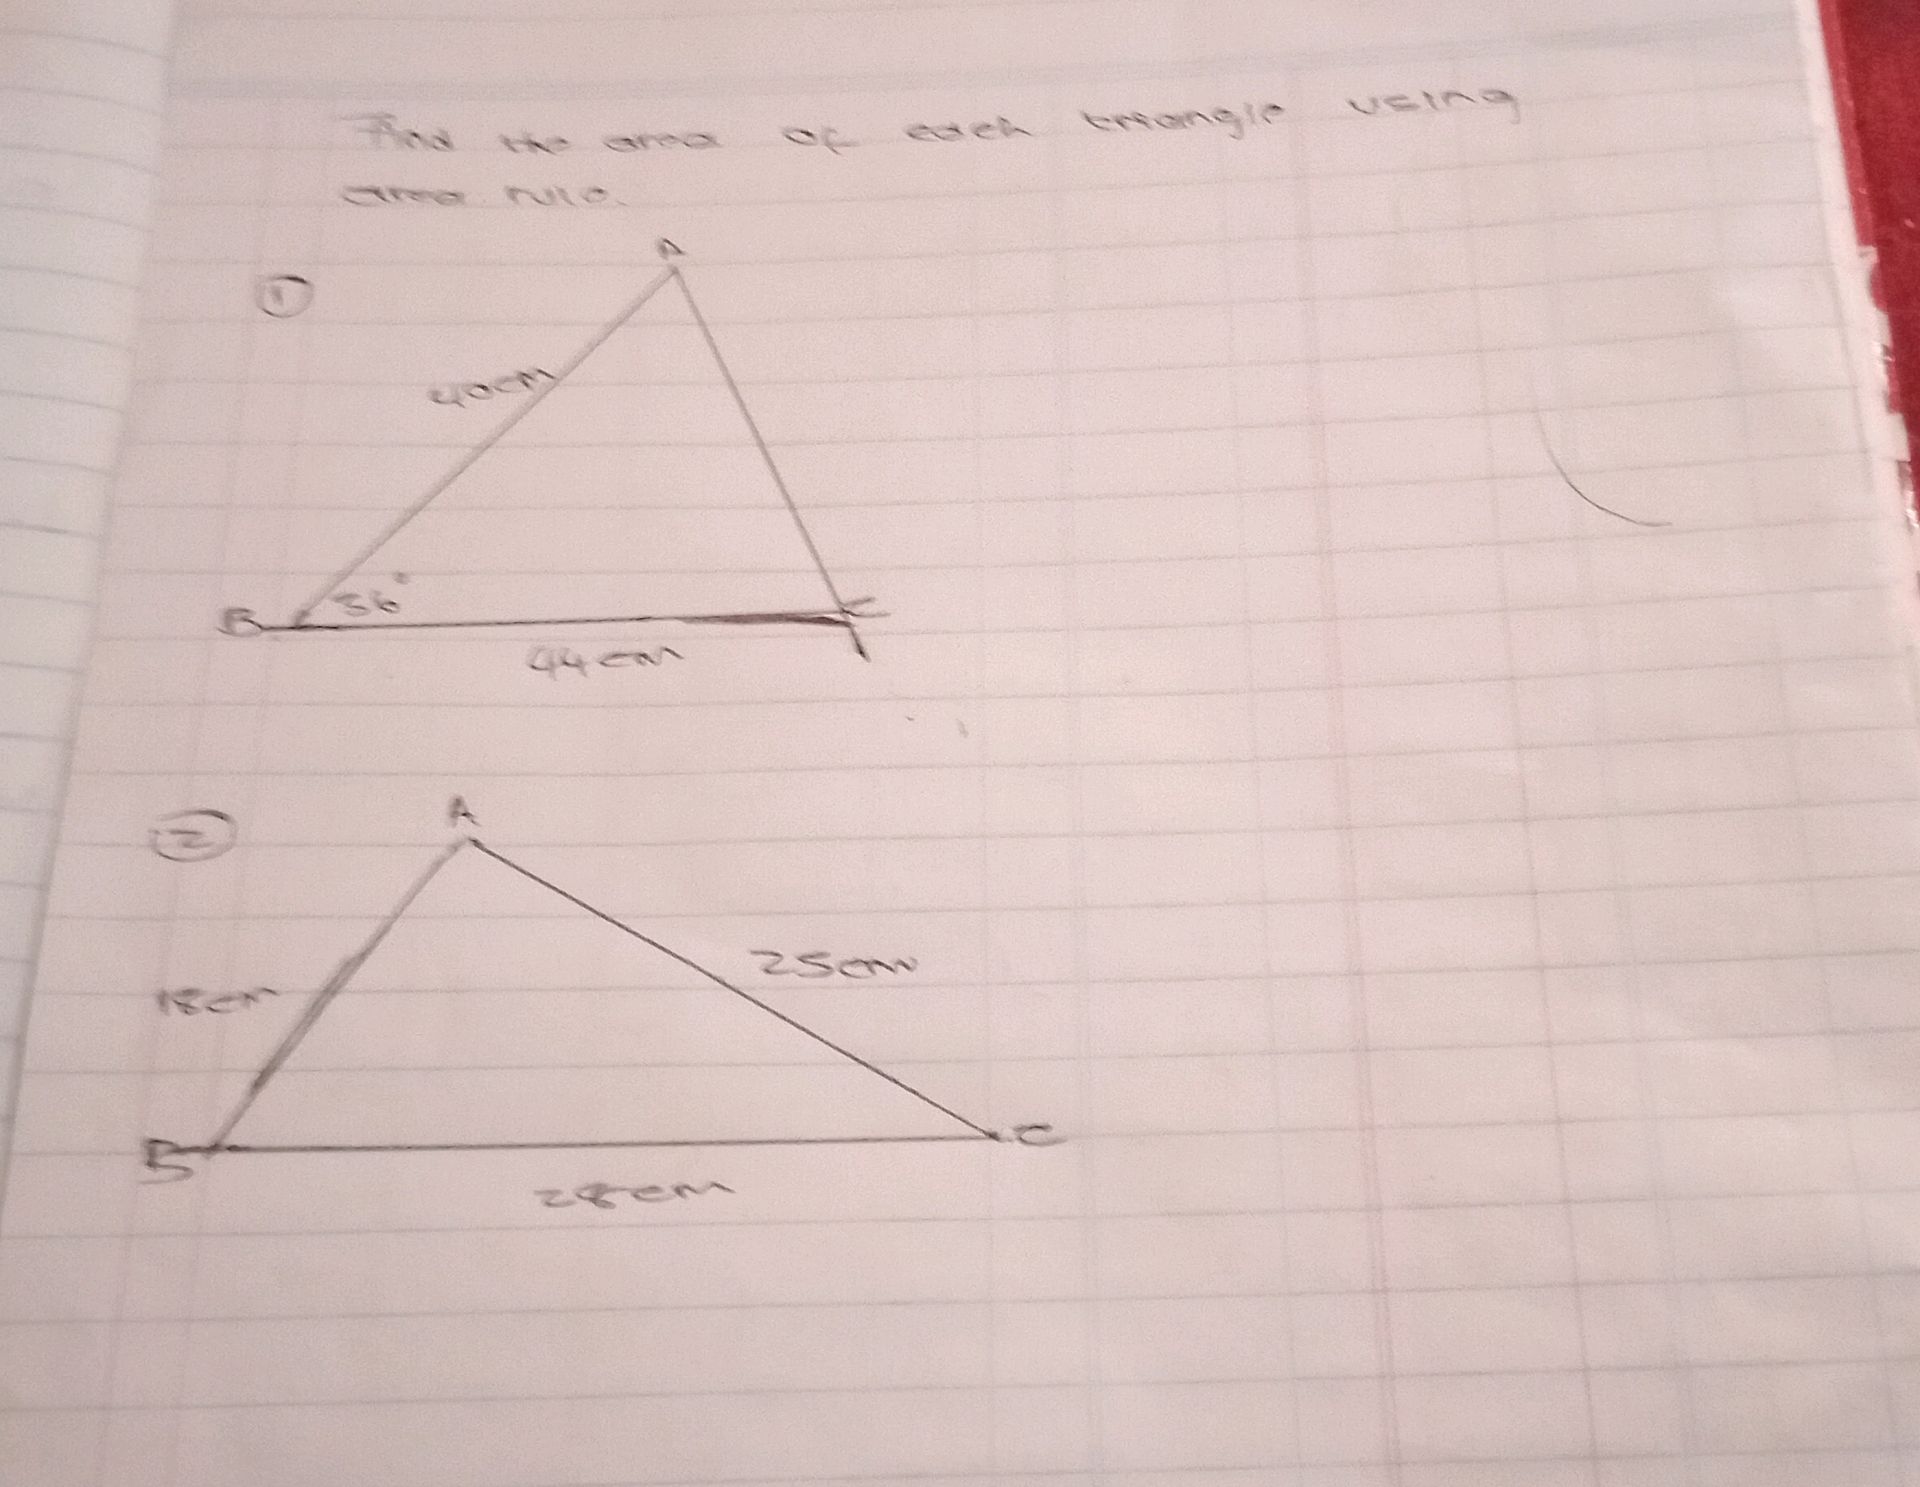 Find the area of each triangle using
area rule.
①
A
40cm
36°
B
C
44cm
②
A
25cm
18cm
B
C
28cm